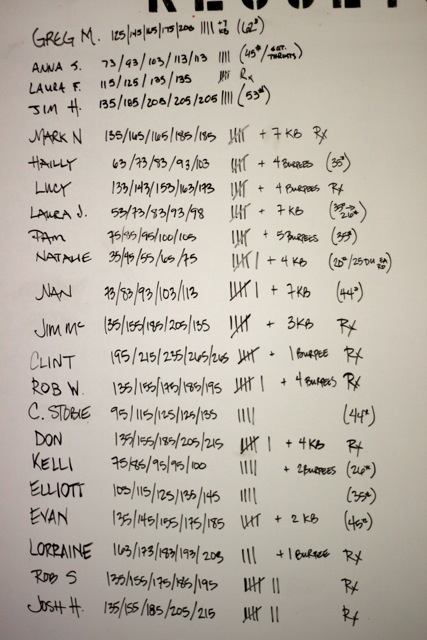 GREG M. 125/145/165/175/205 |||| +7 KB (62#)
ANNA S. 73/93/103/113/113 |||| (45#/ THRUSTS)
LAURA F. 115/125/135/135 Rx
JIM H. 135/185/205/205/205 |||| (53#)
MARK N 135/165/165/185/185 |||| + 7 KB Rx
HAILLY 63/73/83/93/103 |||| + 4 BURPEES (35#)
LUCY 133/143/153/163/173 |||| + 4 BURPEES Rx
LAURA J. 53/73/83/93/98 |||| + 7 KB (35#→26#)
PAM 75/85/95/100/105 |||| + 5 BURPEES (35#)
NATALIE 35/45/55/65/75 |||| | + 4 KB
NAN 73/83/93/103/113 |||| | + 7 KB (44#)
JIM MC 135/155/185/205/135 |||| + 3 KB Rx
CLINT 195/215/235/265/265 |||| + 1 BURPEE Rx
ROB W. 135/155/175/185/195 |||| | + 4 BURPEES Rx
C. STOBIE 95/115/125/125/135 |||| (44#)
DON 135/155/185/205/215 |||| | + 4 KB Rx
KELLI 75/85/95/95/100 |||| + 2 BURPEES (26#)
ELLIOTT 105/115/125/135/145 |||| (35#)
EVAN 135/145/155/175/185 |||| + 2 KB (45#)
LORRAINE 163/173/183/193/203 ||| + 1 BURPEE Rx
ROB S 135/155/175/185/195 |||| || Rx
JOSH H. 135/155/185/205/215 |||| || Rx